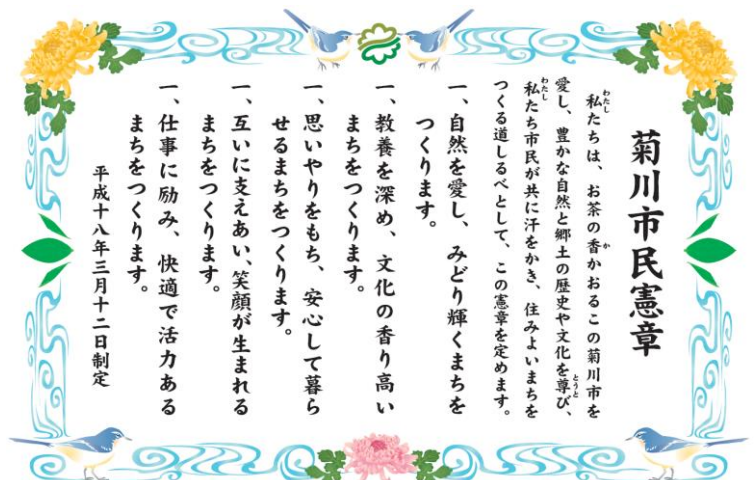 菊川市民憲章
私たちは、お茶の香かおるこの菊川市を
愛し、豊かな自然と郷土の歴史や文化を尊び、
私たち市民が共に汗をかき、住みよいまちを
つくる道しるべとして、この憲章を定めます。
一、自然を愛し、みどり輝くまちを
つくります。
一、教養を深め、文化の香り高い
まちをつくります。
一、思いやりをもち、安心して暮ら
せるまちをつくります。
一、互いに支えあい、笑顔が生まれる
まちをつくります。
一、仕事に励み、快適で活力ある
まちをつくります。
平成十八年三月十二日制定